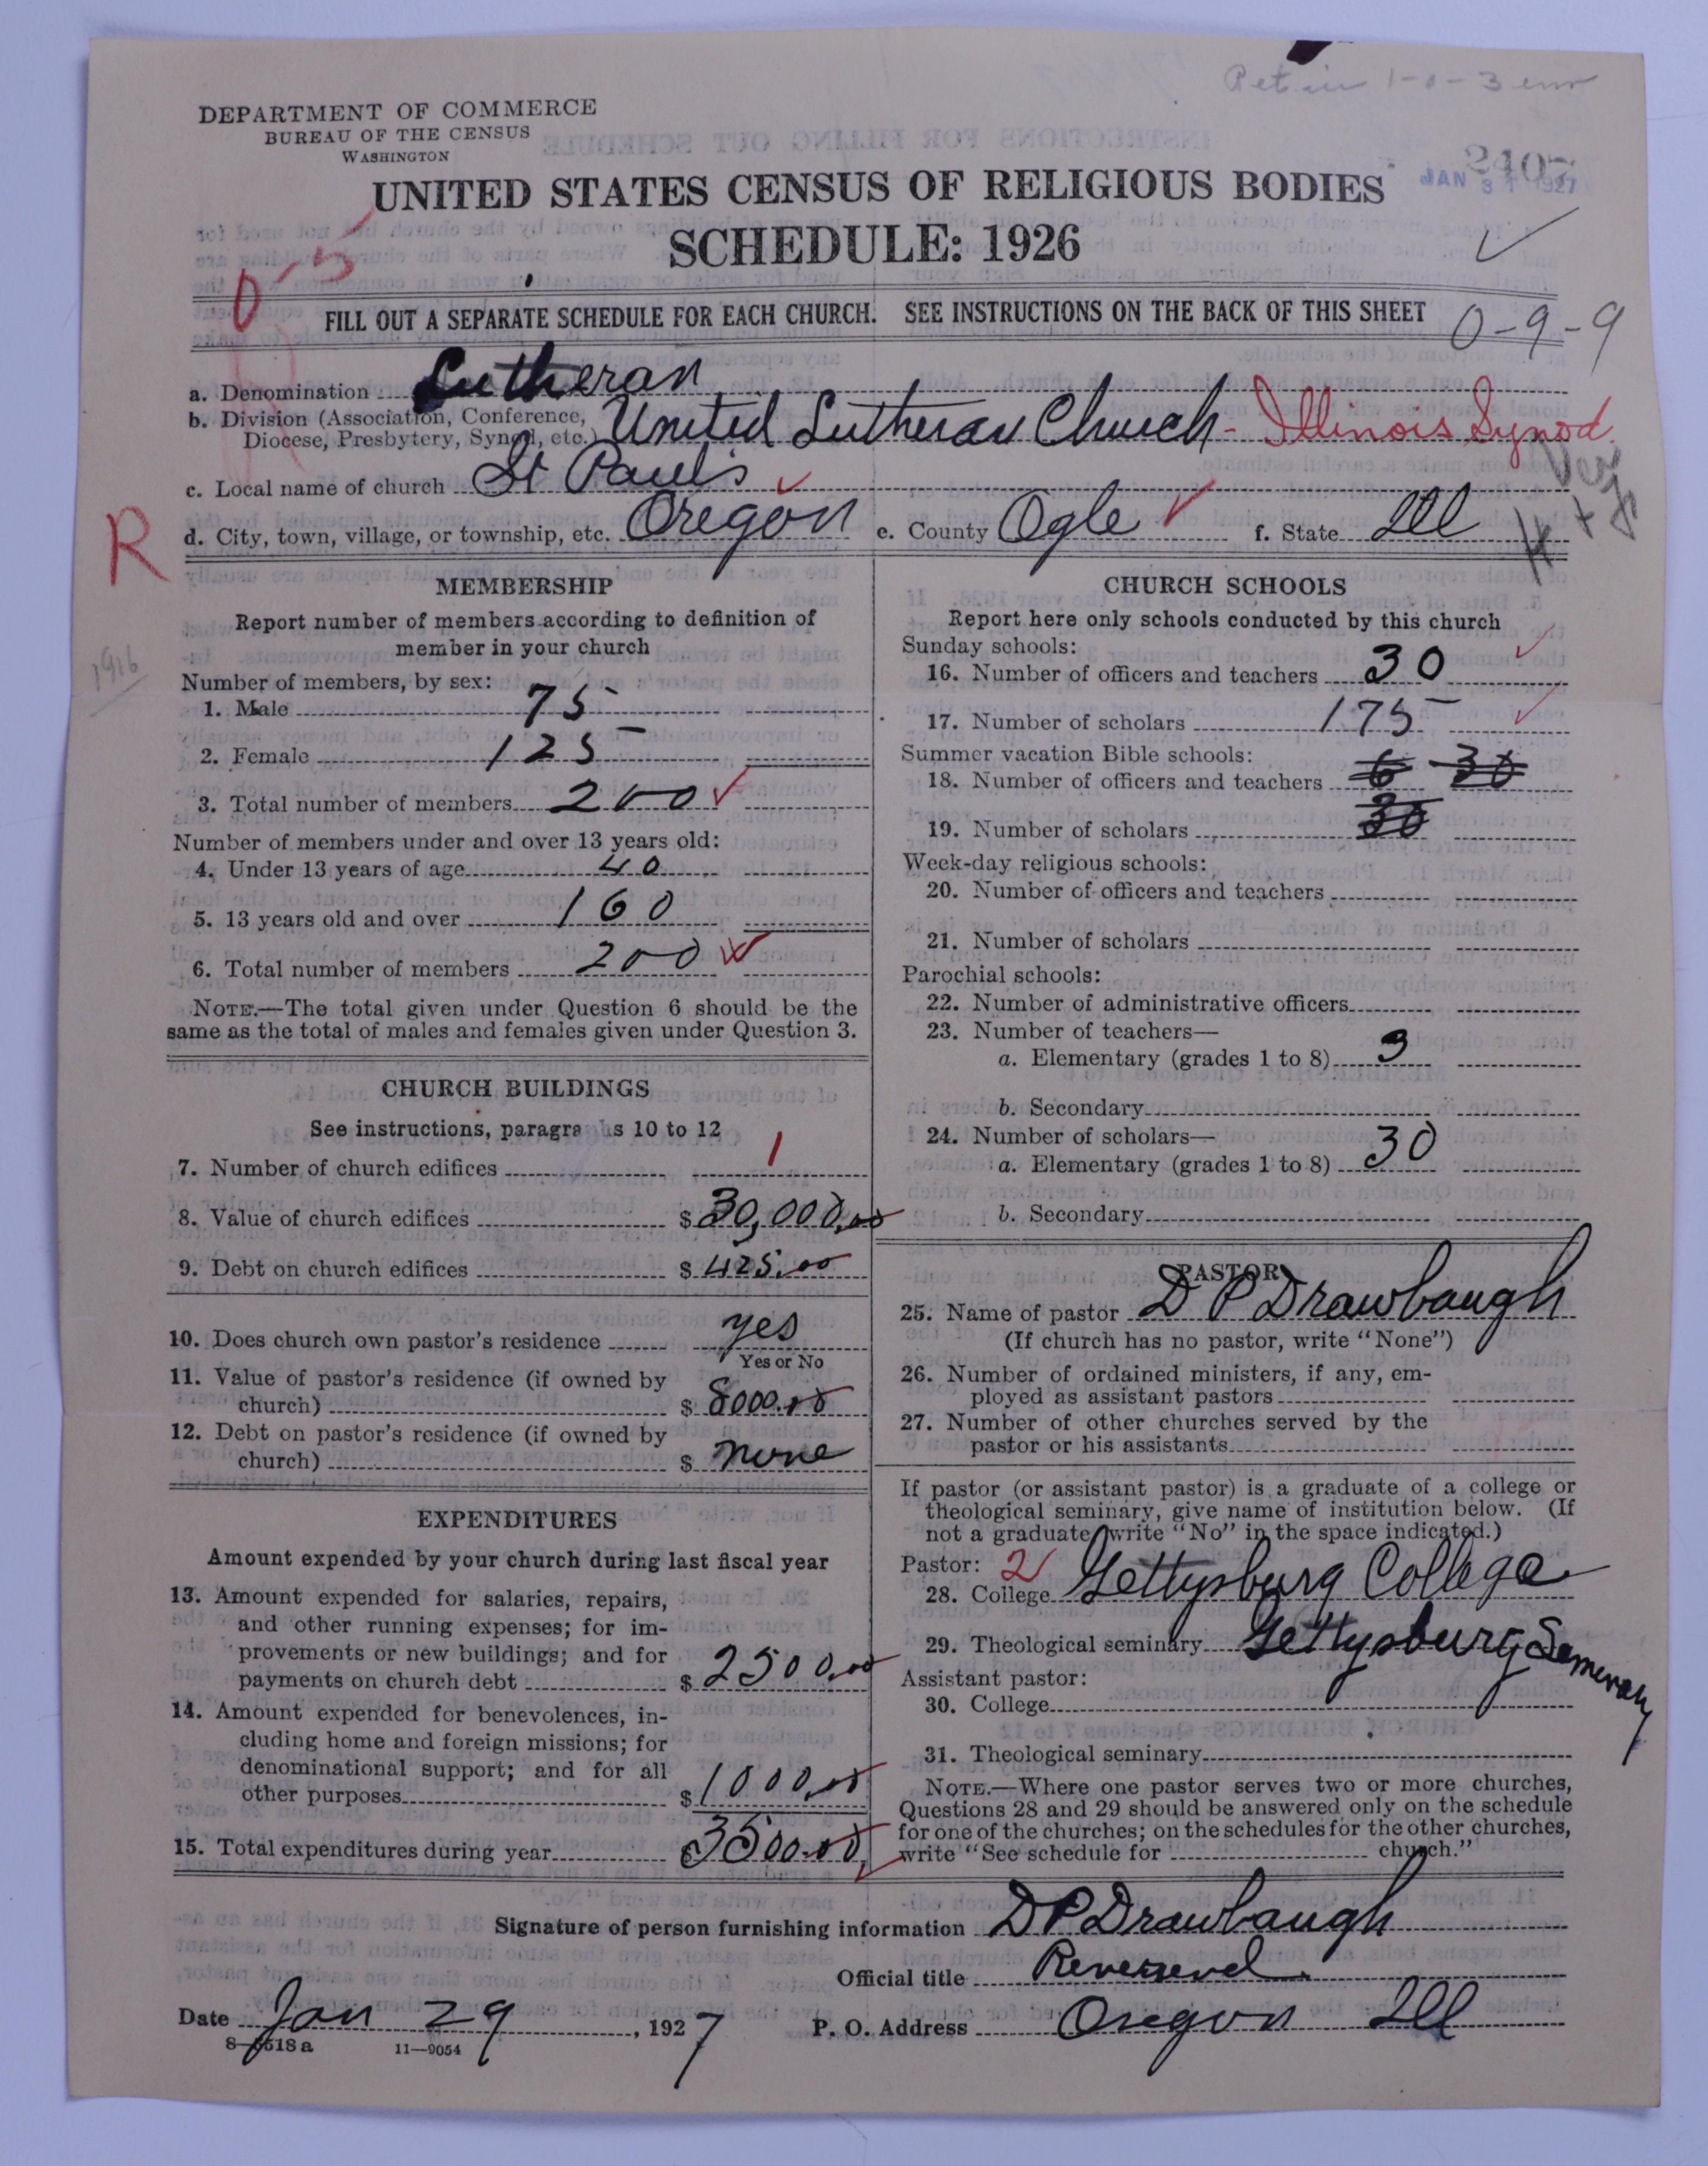 Pet in 1-0-3 enr
DEPARTMENT OF COMMERCE
BUREAU OF THE CENSUS
WASHINGTON
2407
JAN 31 1927
UNITED STATES CENSUS OF RELIGIOUS BODIES
SCHEDULE: 1926
0-5
FILL OUT A SEPARATE SCHEDULE FOR EACH CHURCH. SEE INSTRUCTIONS ON THE BACK OF THIS SHEET
0-9-9
a. Denomination Lutheran
b. Division (Association, Conference, Diocese, Presbytery, Synod, etc.) United Lutheran Church - Illinois Synod.
c. Local name of church St Paul's
R
d. City, town, village, or township, etc. Oregon e. County Ogle f. State Ill
MEMBERSHIP
Report number of members according to definition of
member in your church
1916
Number of members, by sex:
1. Male 75
2. Female 125
3. Total number of members 200
Number of members under and over 13 years old:
4. Under 13 years of age 40
5. 13 years old and over 160
6. Total number of members 200
NOTE.—The total given under Question 6 should be the
same as the total of males and females given under Question 3.
CHURCH BUILDINGS
See instructions, paragra s 10 to 12
7. Number of church edifices 1
8. Value of church edifices $ 30,000.00
9. Debt on church edifices $ 425.00
10. Does church own pastor's residence yes
Yes or No
11. Value of pastor's residence (if owned by
church) $ 8000.00
12. Debt on pastor's residence (if owned by
church) $ none
EXPENDITURES
Amount expended by your church during last fiscal year
13. Amount expended for salaries, repairs,
and other running expenses; for im-
provements or new buildings; and for
payments on church debt $ 2500.00
14. Amount expended for benevolences, in-
cluding home and foreign missions; for
denominational support; and for all
other purposes $ 1000.00
15. Total expenditures during year $ 3500.00
CHURCH SCHOOLS
Report here only schools conducted by this church
Sunday schools:
16. Number of officers and teachers 30
17. Number of scholars 175
Summer vacation Bible schools:
18. Number of officers and teachers 6 30
19. Number of scholars 30
Week-day religious schools:
20. Number of officers and teachers
21. Number of scholars
Parochial schools:
22. Number of administrative officers
23. Number of teachers—
a. Elementary (grades 1 to 8) 3
b. Secondary
24. Number of scholars—
a. Elementary (grades 1 to 8) 30
b. Secondary
PASTOR
25. Name of pastor D P Drawbaugh
(If church has no pastor, write "None")
26. Number of ordained ministers, if any, em-
ployed as assistant pastors
27. Number of other churches served by the
pastor or his assistants
If pastor (or assistant pastor) is a graduate of a college or
theological seminary, give name of institution below. (If
not a graduate, write "No" in the space indicated.)
Pastor: 2
28. College Gettysburg College
29. Theological seminary Gettysburg Semenary
Assistant pastor:
30. College
31. Theological seminary
NOTE.—Where one pastor serves two or more churches,
Questions 28 and 29 should be answered only on the schedule
for one of the churches; on the schedules for the other churches,
write "See schedule for church."
Signature of person furnishing information D P Drawbaugh
Official title Reverend
Date Jan 29, 1927 P. O. Address Oregon Ill
8-518a 11-9054